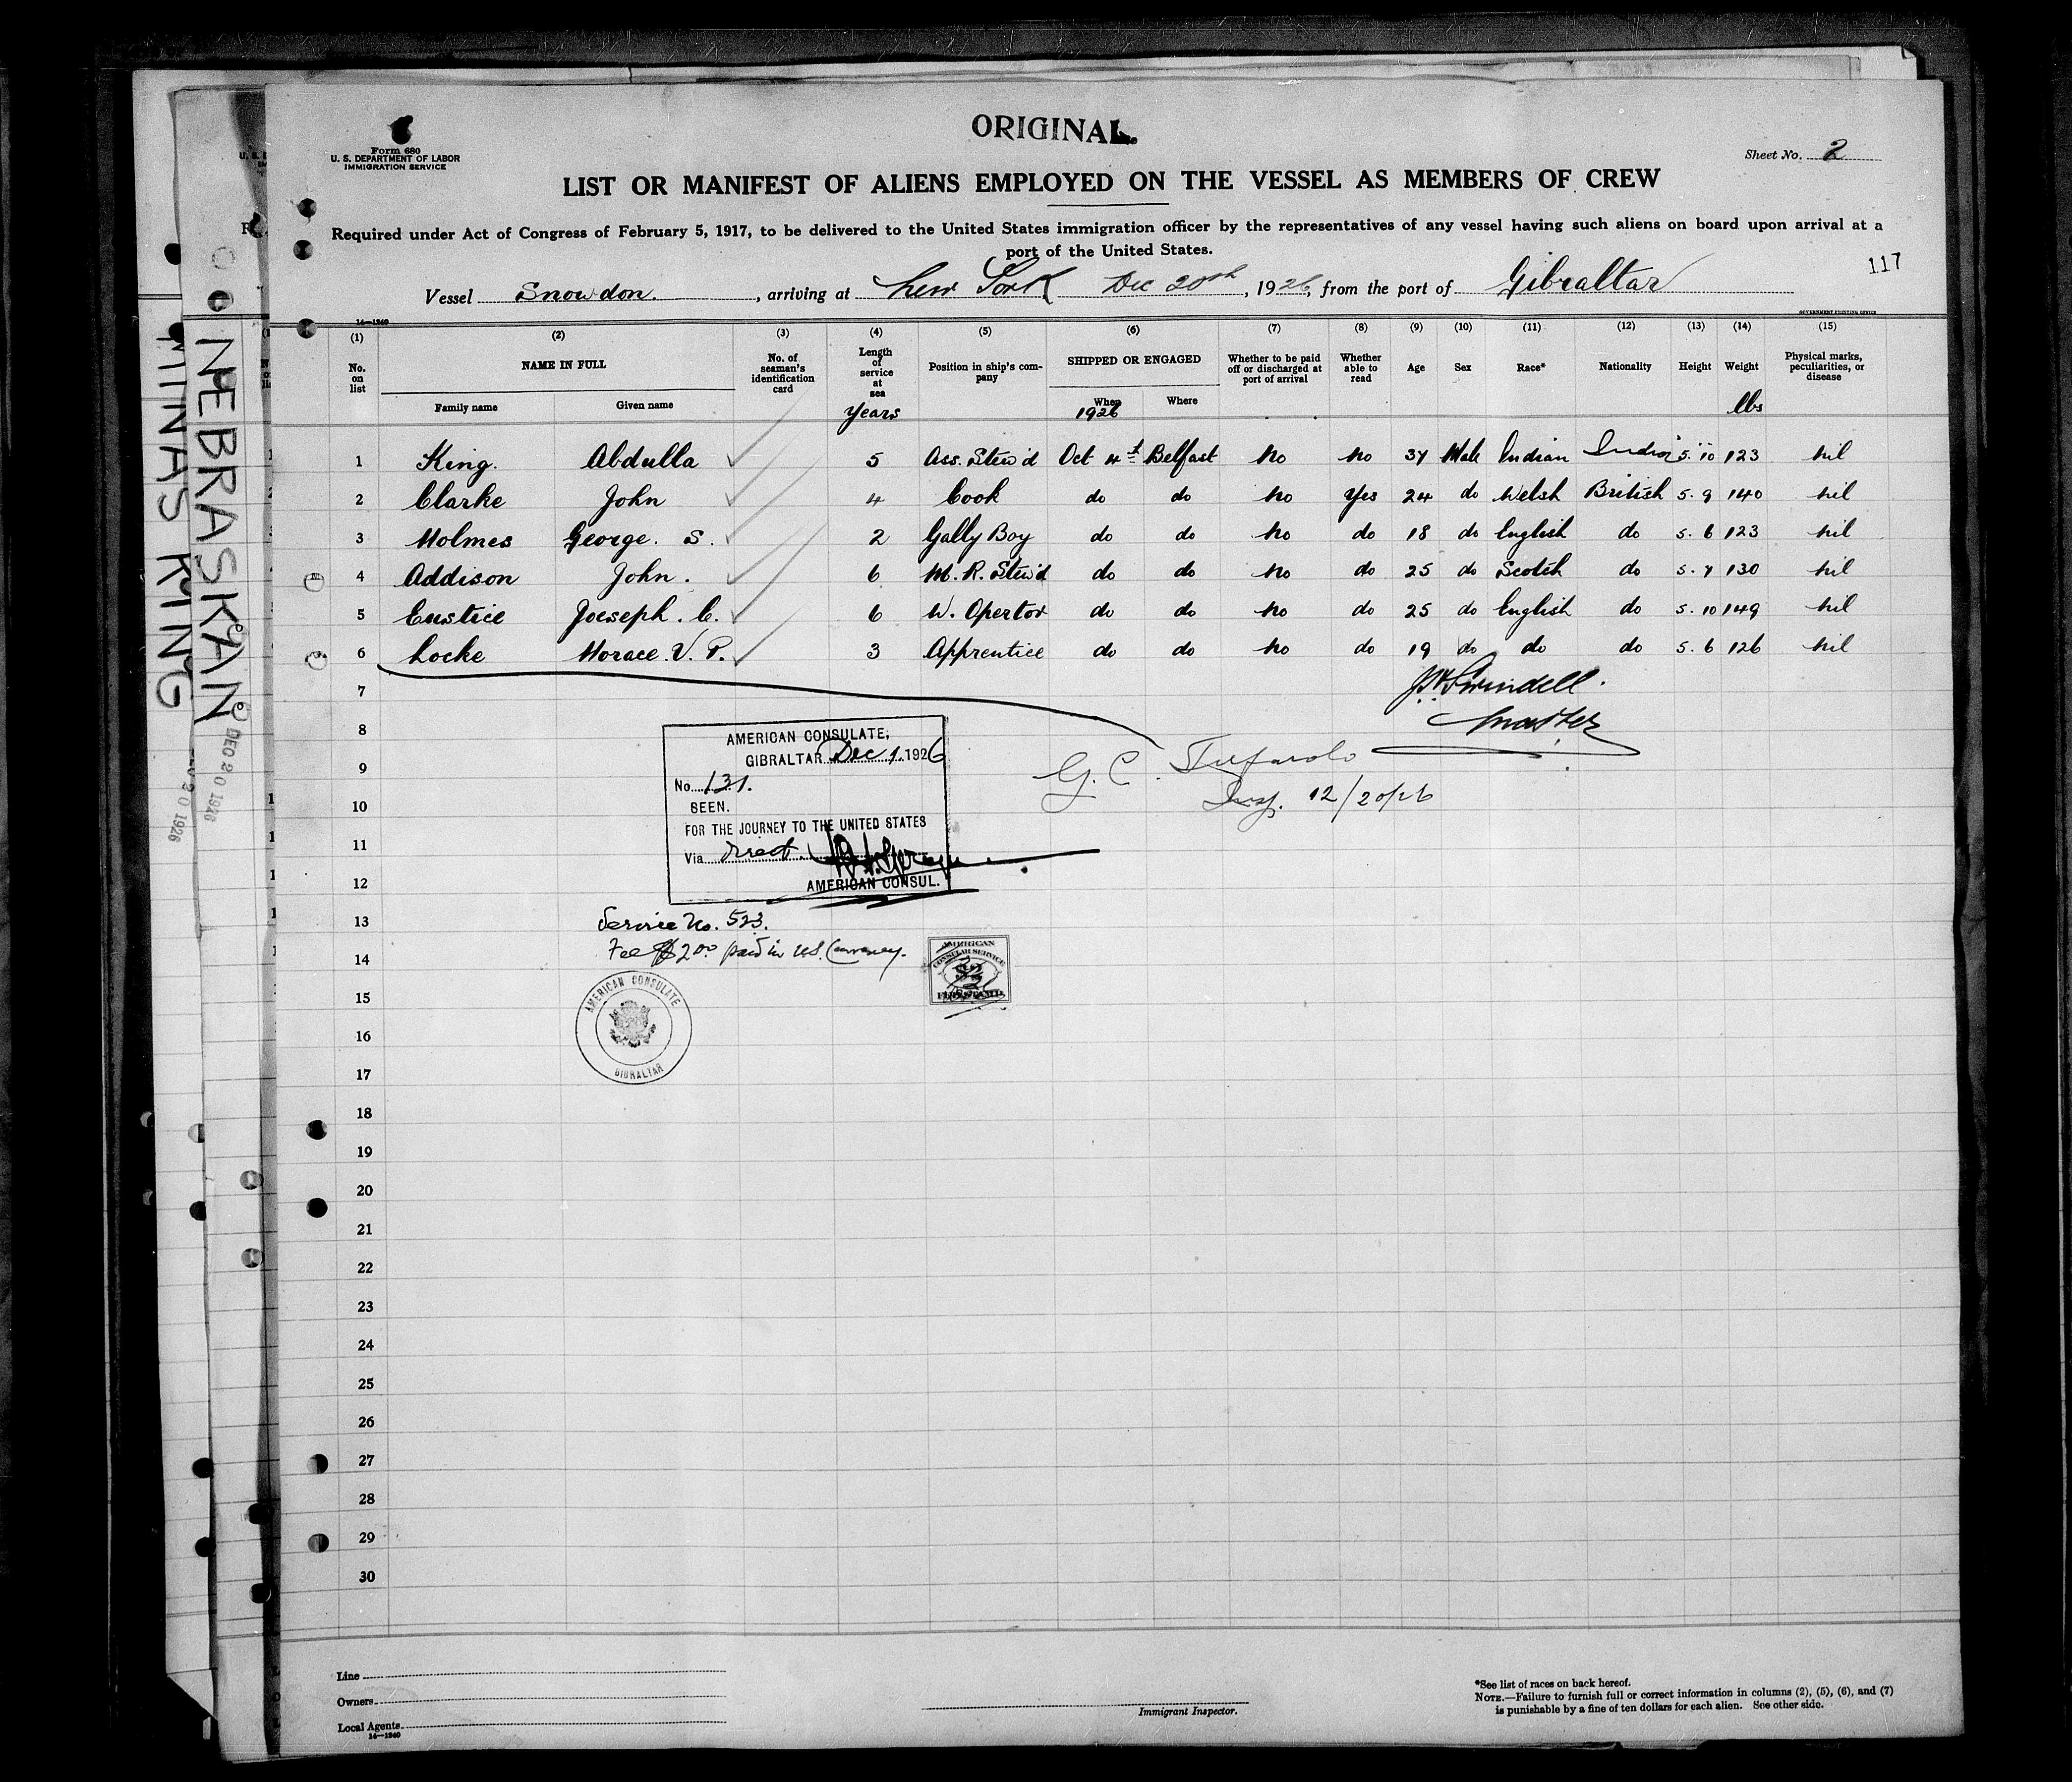 ORIGINAL
Form 680
U. S. DEPARTMENT OF LABOR
IMMIGRATION SERVICE
Sheet No. 2
LIST OR MANIFEST OF ALIENS EMPLOYED ON THE VESSEL AS MEMBERS OF CREW
Required under Act of Congress of February 5, 1917, to be delivered to the United States immigration officer by the representatives of any vessel having such aliens on board upon arrival at a
port of the United States.
117
Vessel Snowdon. , arriving at New York Dec 20th, 1926, from the port of Gibraltar
14—1240
GOVERNMENT PRINTING OFFICE
(1) (2) (3) (4) (5) (6) (7) (8) (9) (10) (11) (12) (13) (14) (15)
No. on list NAME IN FULL No. of seaman's identification card Length of service at sea Position in ship's company SHIPPED OR ENGAGED Whether to be paid off or discharged at port of arrival Whether able to read Age Sex Race* Nationality Height Weight Physical marks, peculiarities, or disease
Family name Given name Years When 1926 Where lbs
1 King. Abdulla 5 Ass. Stew'd Oct 4th Belfast No No 37 Male Indian India 5. 10 123 nil
2 Clarke John 4 Cook do do No Yes 24 do Welsh British 5. 9 140 nil
3 Holmes George. S. 2 Gally Boy do do No do 18 do English do 5. 6 123 nil
4 Addison John. 6 M. R. Stew'd do do No do 25 do Scotch do 5. 7 130 nil
5 Eustice Joeseph. C. 6 W. Opertor do do No do 25 do English do 5. 10 149 nil
6 Locke Horace. V. P. 3 Apprentice do do No do 19 do do do 5. 6 126 nil
7 Swindell.
8 Master
AMERICAN CONSULATE,
GIBRALTAR Dec 1, 1926
9 G. C.
No. 131.
10 Insp. 12/20/26
SEEN.
FOR THE JOURNEY TO THE UNITED STATES
11
Via direct.
12 AMERICAN CONSUL.
13 Service No. 523.
14 Fee $2.00 paid in U.S. Currency.
AMERICAN
CONSULAR SERVICE
$2
FEE STAMP
15
AMERICAN CONSULATE
16
GIBRALTAR
17
18
19
20
21
22
23
24
25
26
27
28
29
30
Line
Owners
Local Agents
14—1240
Immigrant Inspector.
*See list of races on back hereof.
NOTE.—Failure to furnish full or correct information in columns (2), (5), (6), and (7)
is punishable by a fine of ten dollars for each alien. See other side.
NEBRASKAN
DEC 20 1926
MINAS KING
20 1926